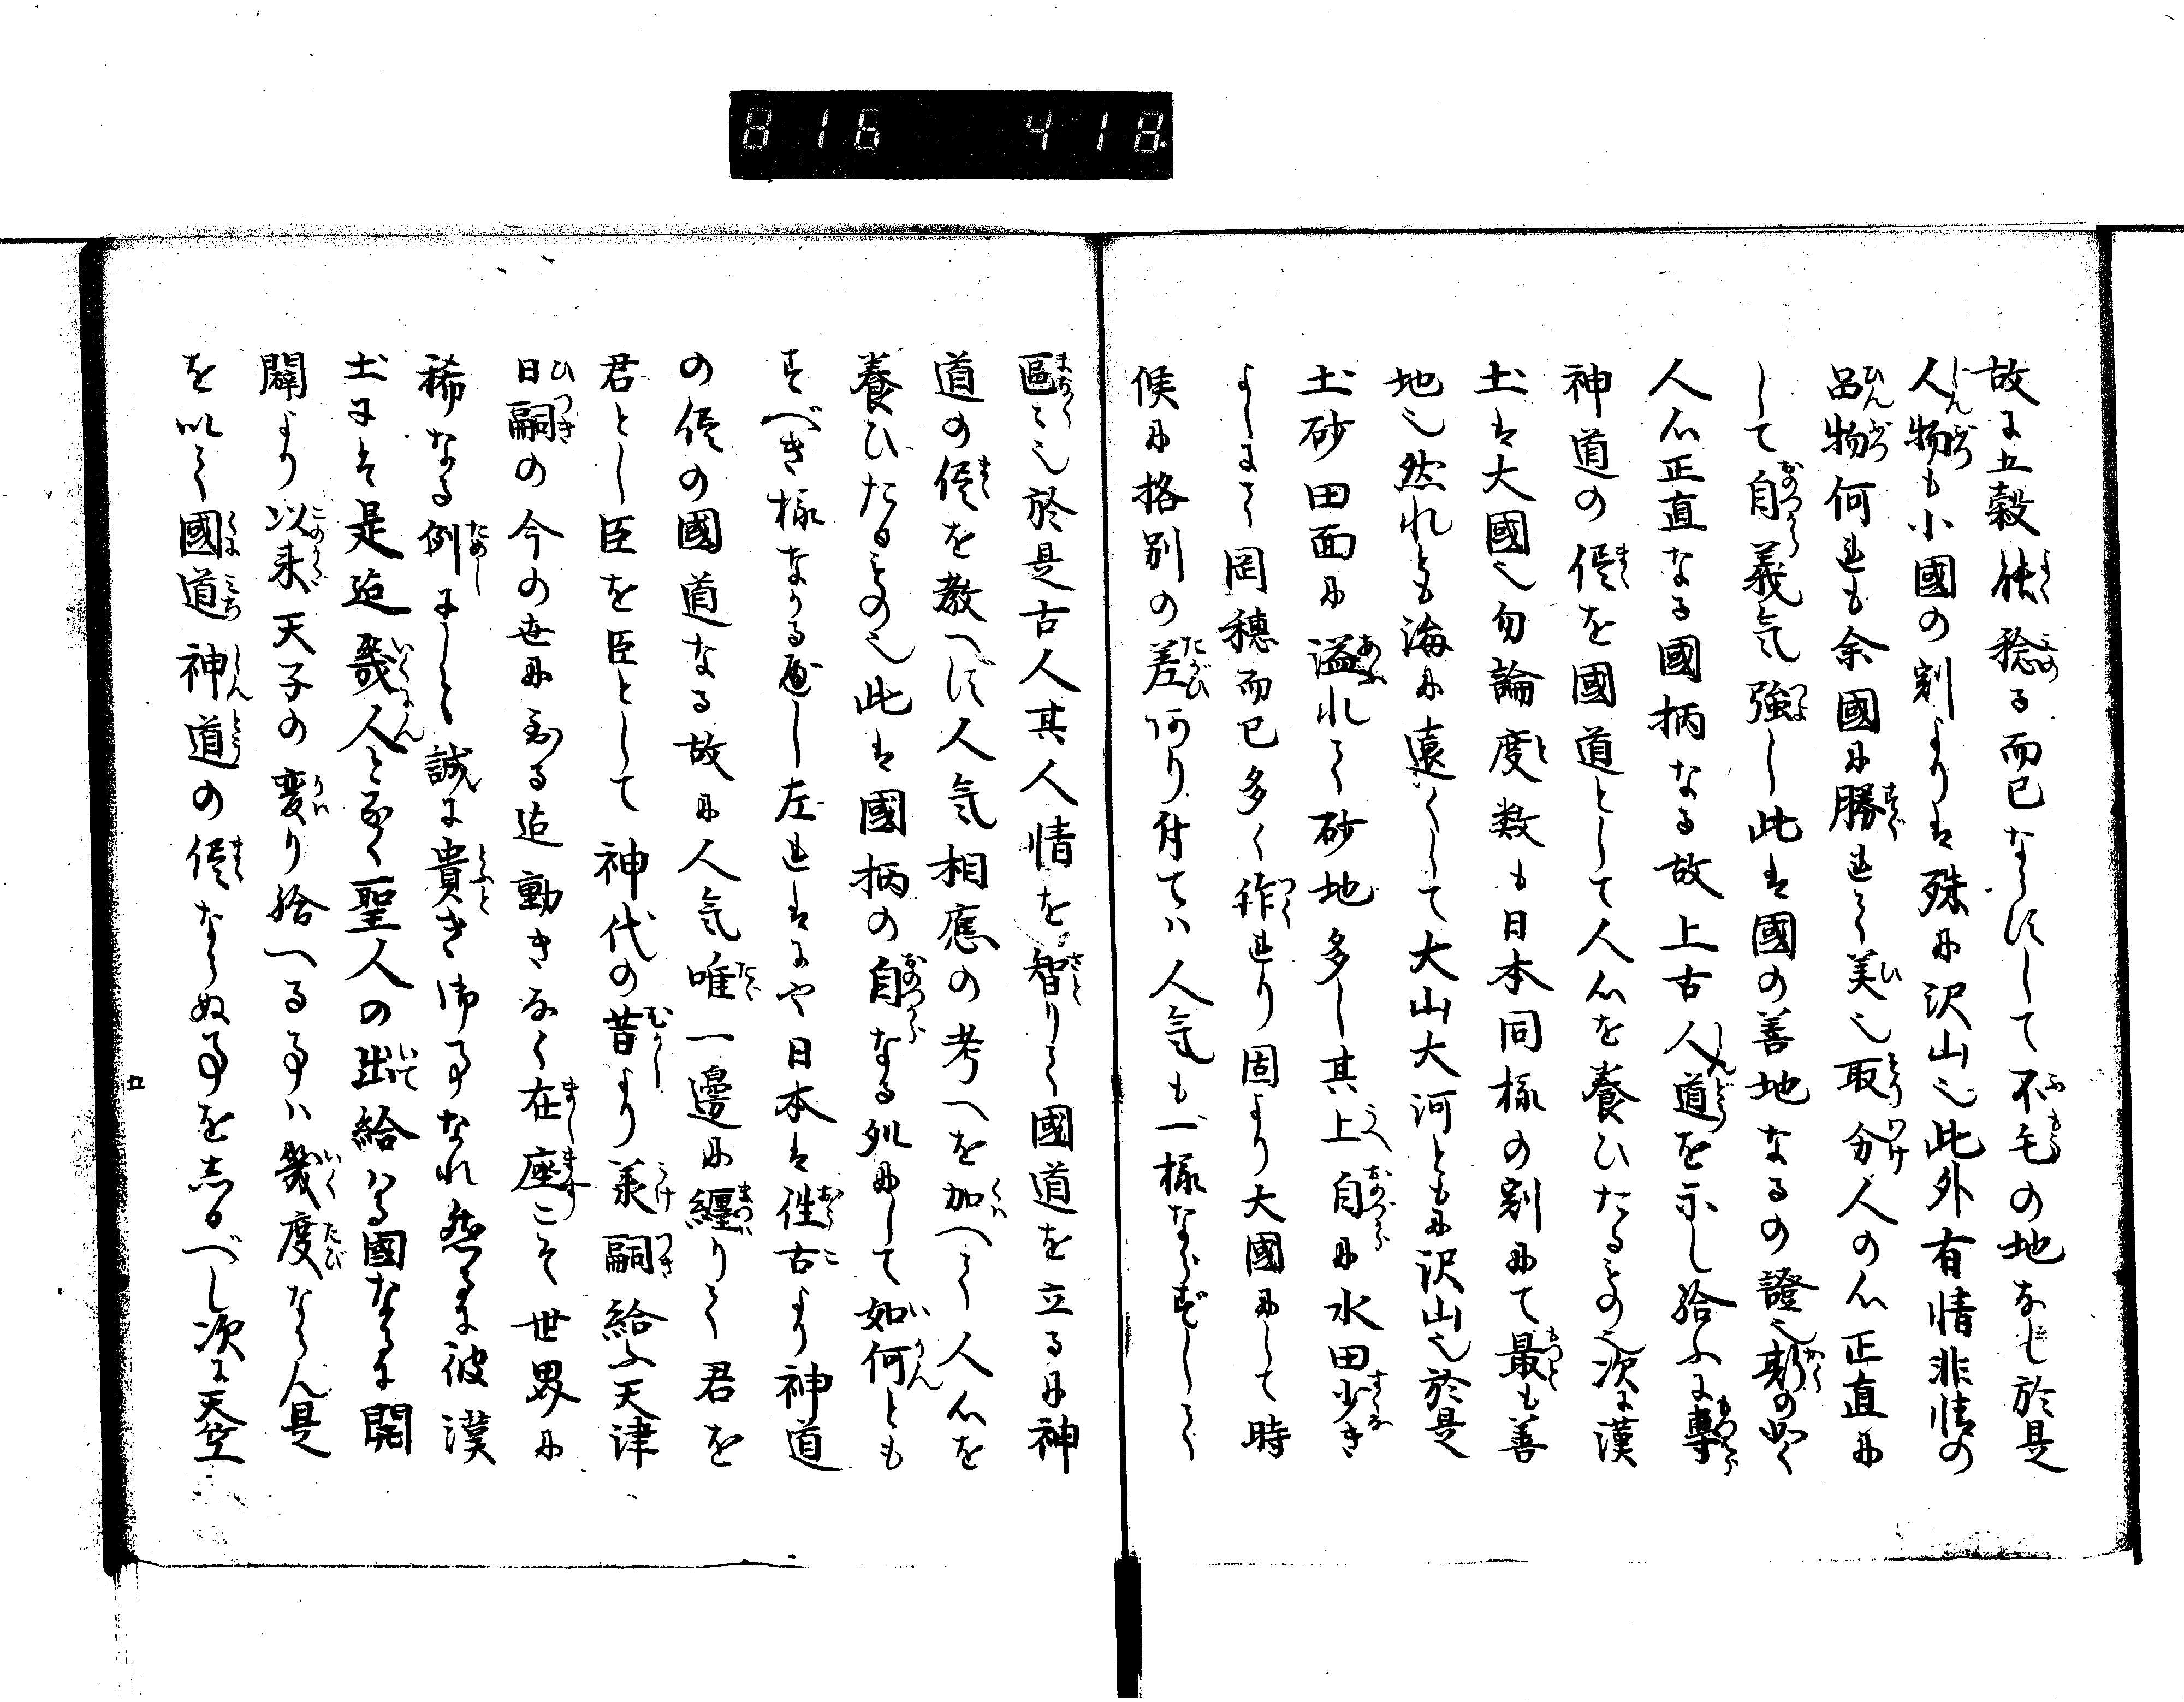 816 418
故に五穀能稔る而已ならずして不毛の地なし於是
人物も小國の割よりは殊に沢山也此外有情非情の
品物何れも余國に勝れて美也取分人の心正直に
して自義気強し此は國の善地なるの證也斯の如く
人心正直なる國柄なる故上古人道を示し給ふに專
神道の侭を國道として人心を養ひたるもの也次に漢
土は大國也勿論度数も日本同様の割にて最も善
地也然れとも海に遠くして大山大河ともに沢山也於是
土砂田面に溢れて砂地多し其上自に水田少き
よしにて岡穂而已多く作れり固より大國にして時
候に格別の差あり付ては人気も一様ならずして
區々也於是古人其人情を智りて國道を立るに神
道の侭を教へず人気相應の考へを加へて人心を
養ひたるもの也此は國柄の自なる処にして如何とも
すべき様なかるべし左れはにや日本は往古より神道
の侭の國道なる故に人気唯一邊に纏りて君を
君とし臣を臣として神代の昔より羕嗣給ふ天津
日嗣の今の世に至る迄動きなく在座こそ世界に
稀なる例にして誠に貴き御事なれ然るに彼漢
土には是迄幾人となく聖人の出給へる國なるに開
闢より以来天子の変り給へる事ハ幾度ならん是
を以て國道神道の侭ならぬ事を志るべし次に天空
五